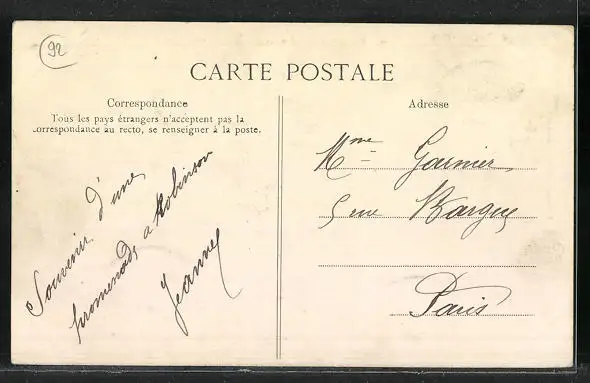 92
CARTE POSTALE
Correspondance
Tous les pays étrangers n'acceptent pas la
correspondance au recto, se renseigner à la poste.
Adresse
Souvenir d'une
promenade a Robinson
Jeanne
Mme Garnier
5 rue Bargue
Paris